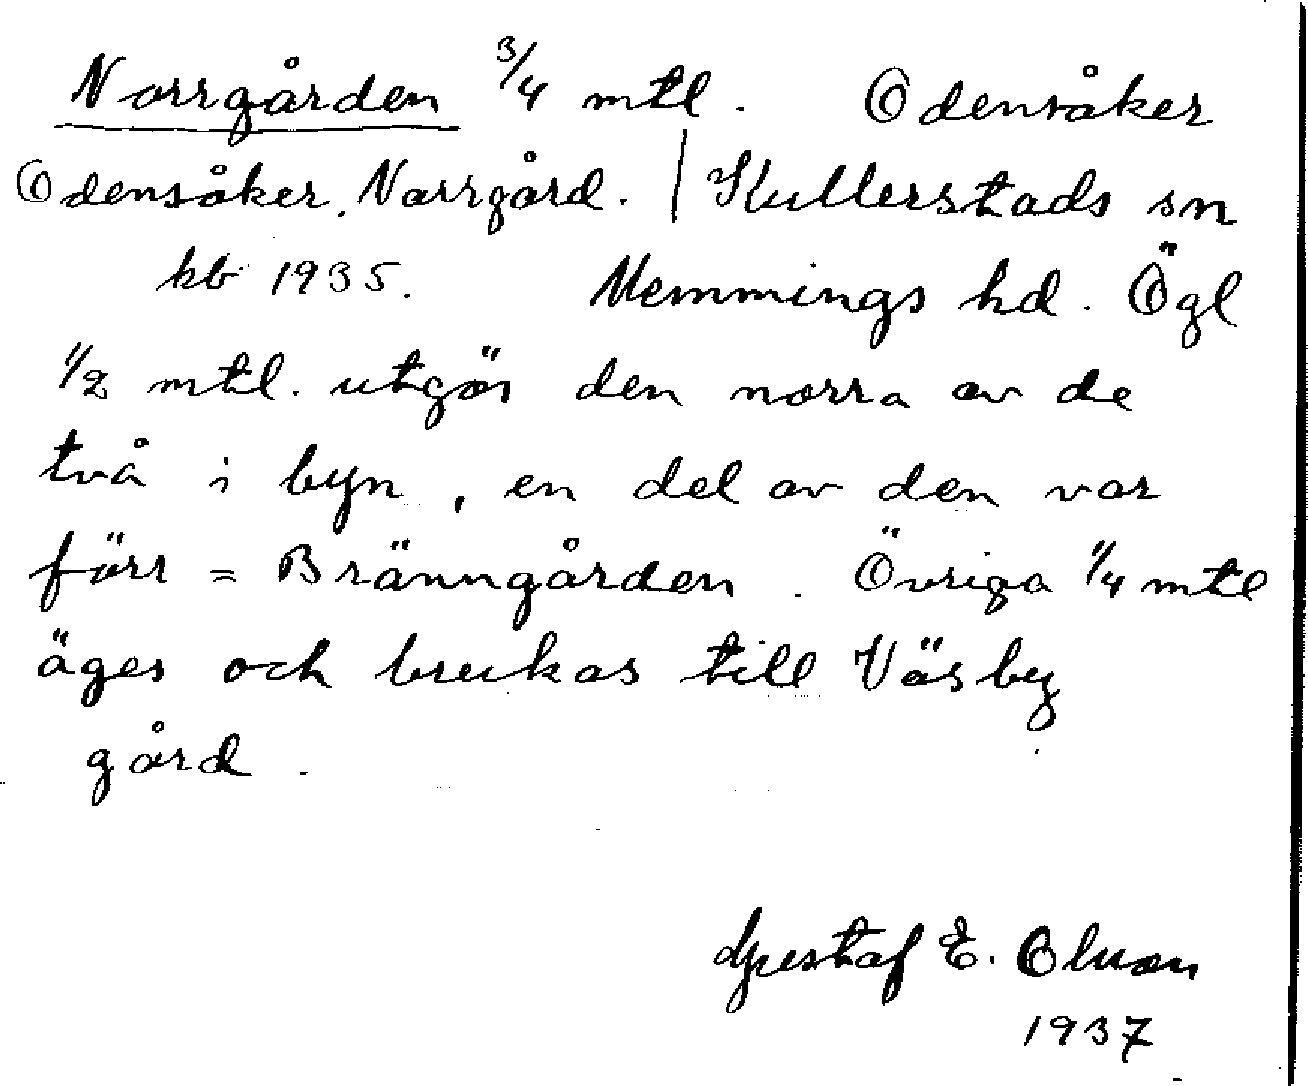 Norrgården 3/4 mtl. Odensåker
Odensåker, Norrgård. | Kullerstads sn
kb 1935. Memmings hd. Ögl
1/2 mtl. utgör den norra av de
två i byn, en del av den var
förr = Bränngården. Övriga 1/4 mtl
äges och brukas till Väsby
gård.
Gustaf E. Olsson
1937